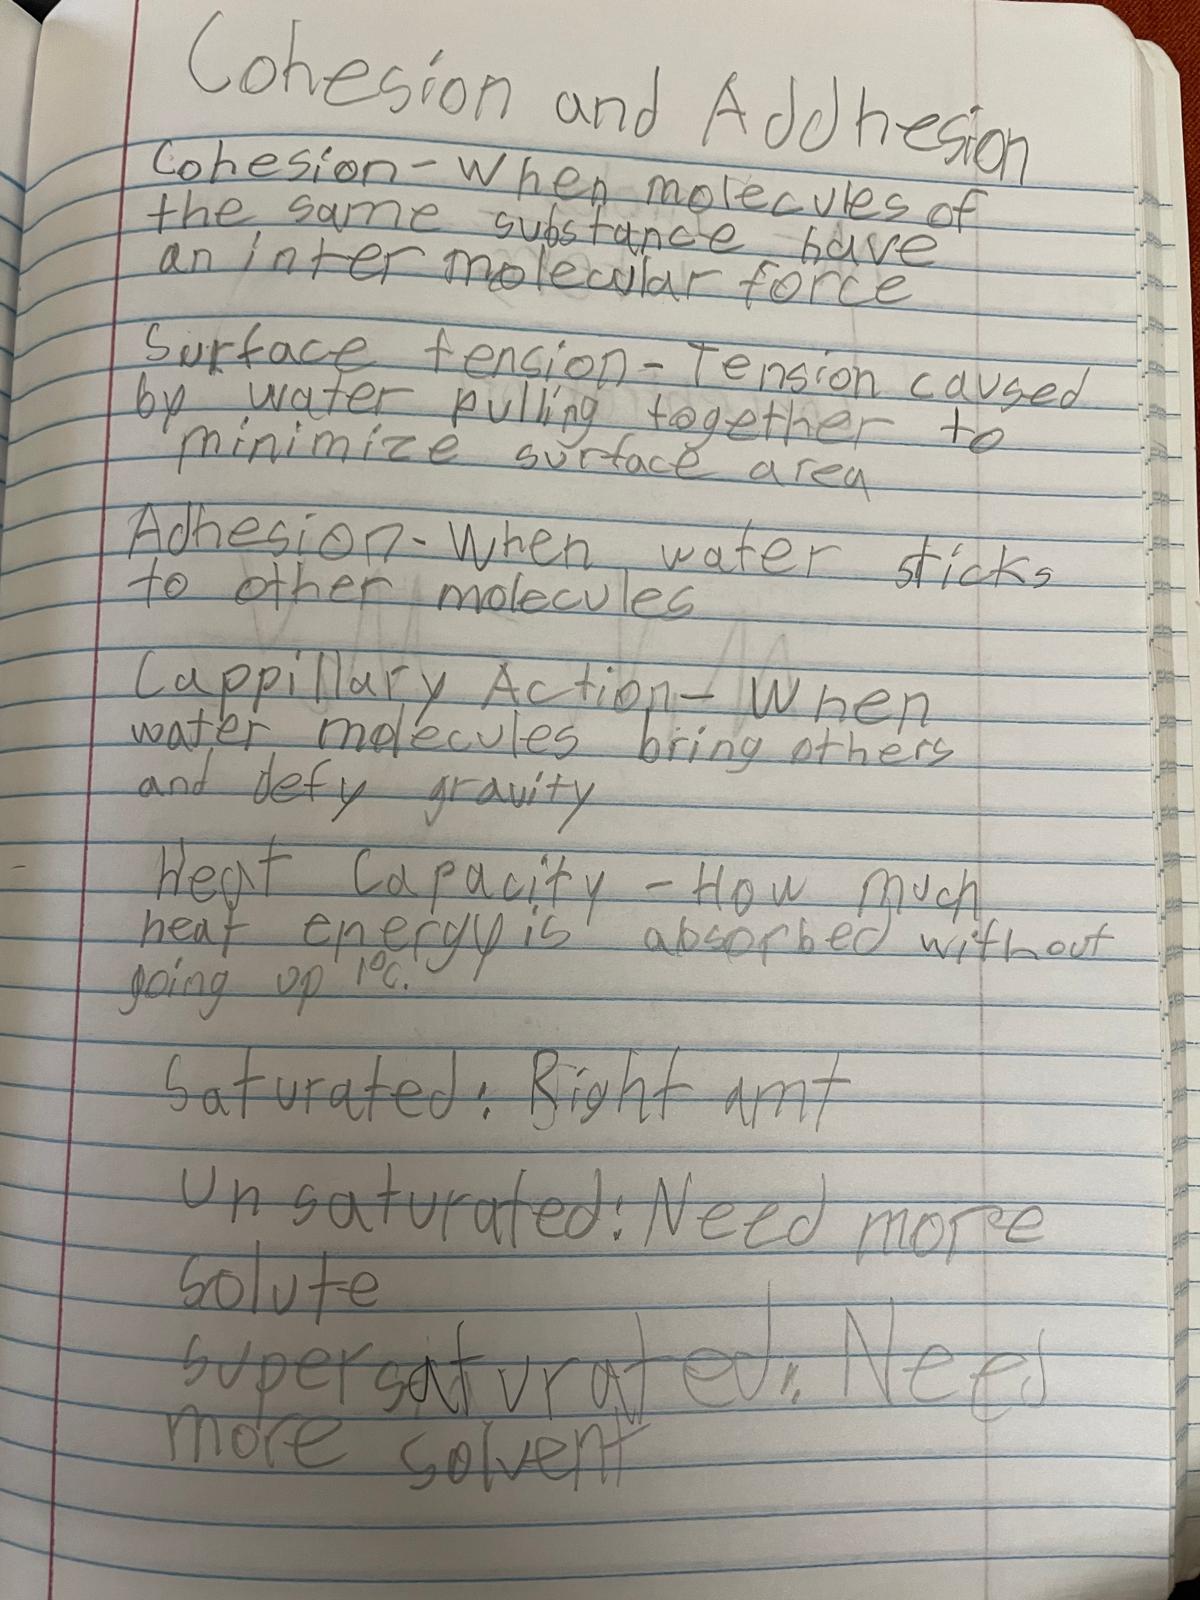 Cohesion and Addhesion
Cohesion - When molecules of
the same substance have
an inter molecular force
Surface tension - Tension caused
by water pulling together to
minimize surface area
Adhesion - When water sticks
to other molecules
Cappillary Action - When
water molecules bring others
and defy gravity
Heat Capacity - How much
heat energy is absorbed without
going up 1°C.
Saturated: Right amt
Unsaturated: Need more
solute
supersaturated: Need
more solvent